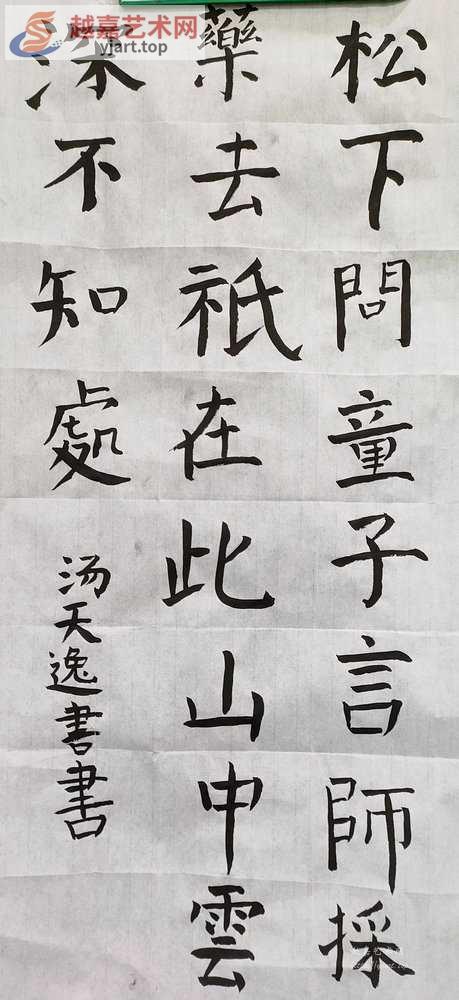 越嘉艺术网
yjart.top
松下問童子言師採
藥去祇在此山申雲
深不知處
汤天逸書書